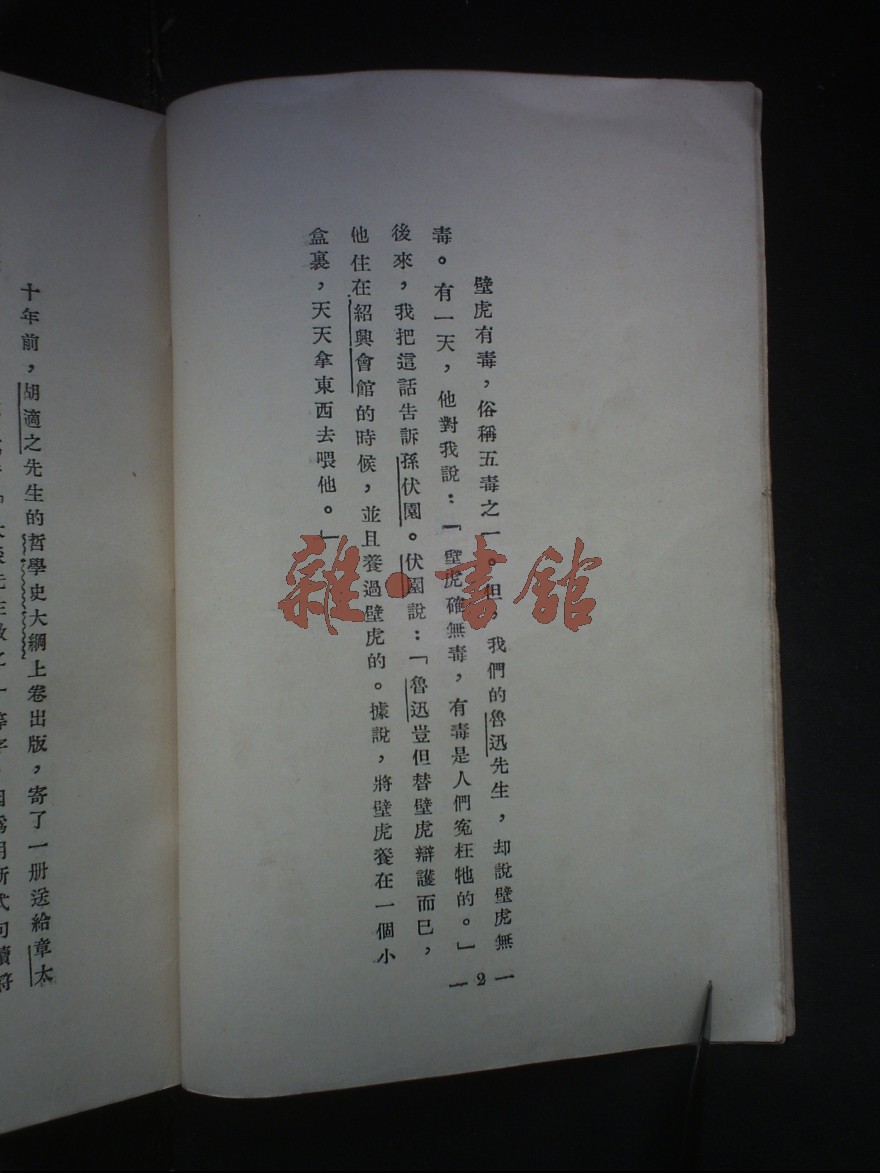 壁虎有毒，俗稱五毒之一。但，我們的魯迅先生，却說壁虎無
毒。有一天，他對我說：「壁虎確無毒，有毒是人們冤枉牠的。」
後來，我把這話告訴孫伏園。伏園說：「魯迅豈但替壁虎辯護而已，
他住在紹興會館的時候，並且養過壁虎的。據說，將壁虎養在一個小
盒裏，天天拿東西去喂他。」
— 2 —
十年前，胡適之先生的哲學史大綱上卷出版，寄了一册送給章太
雜·書館